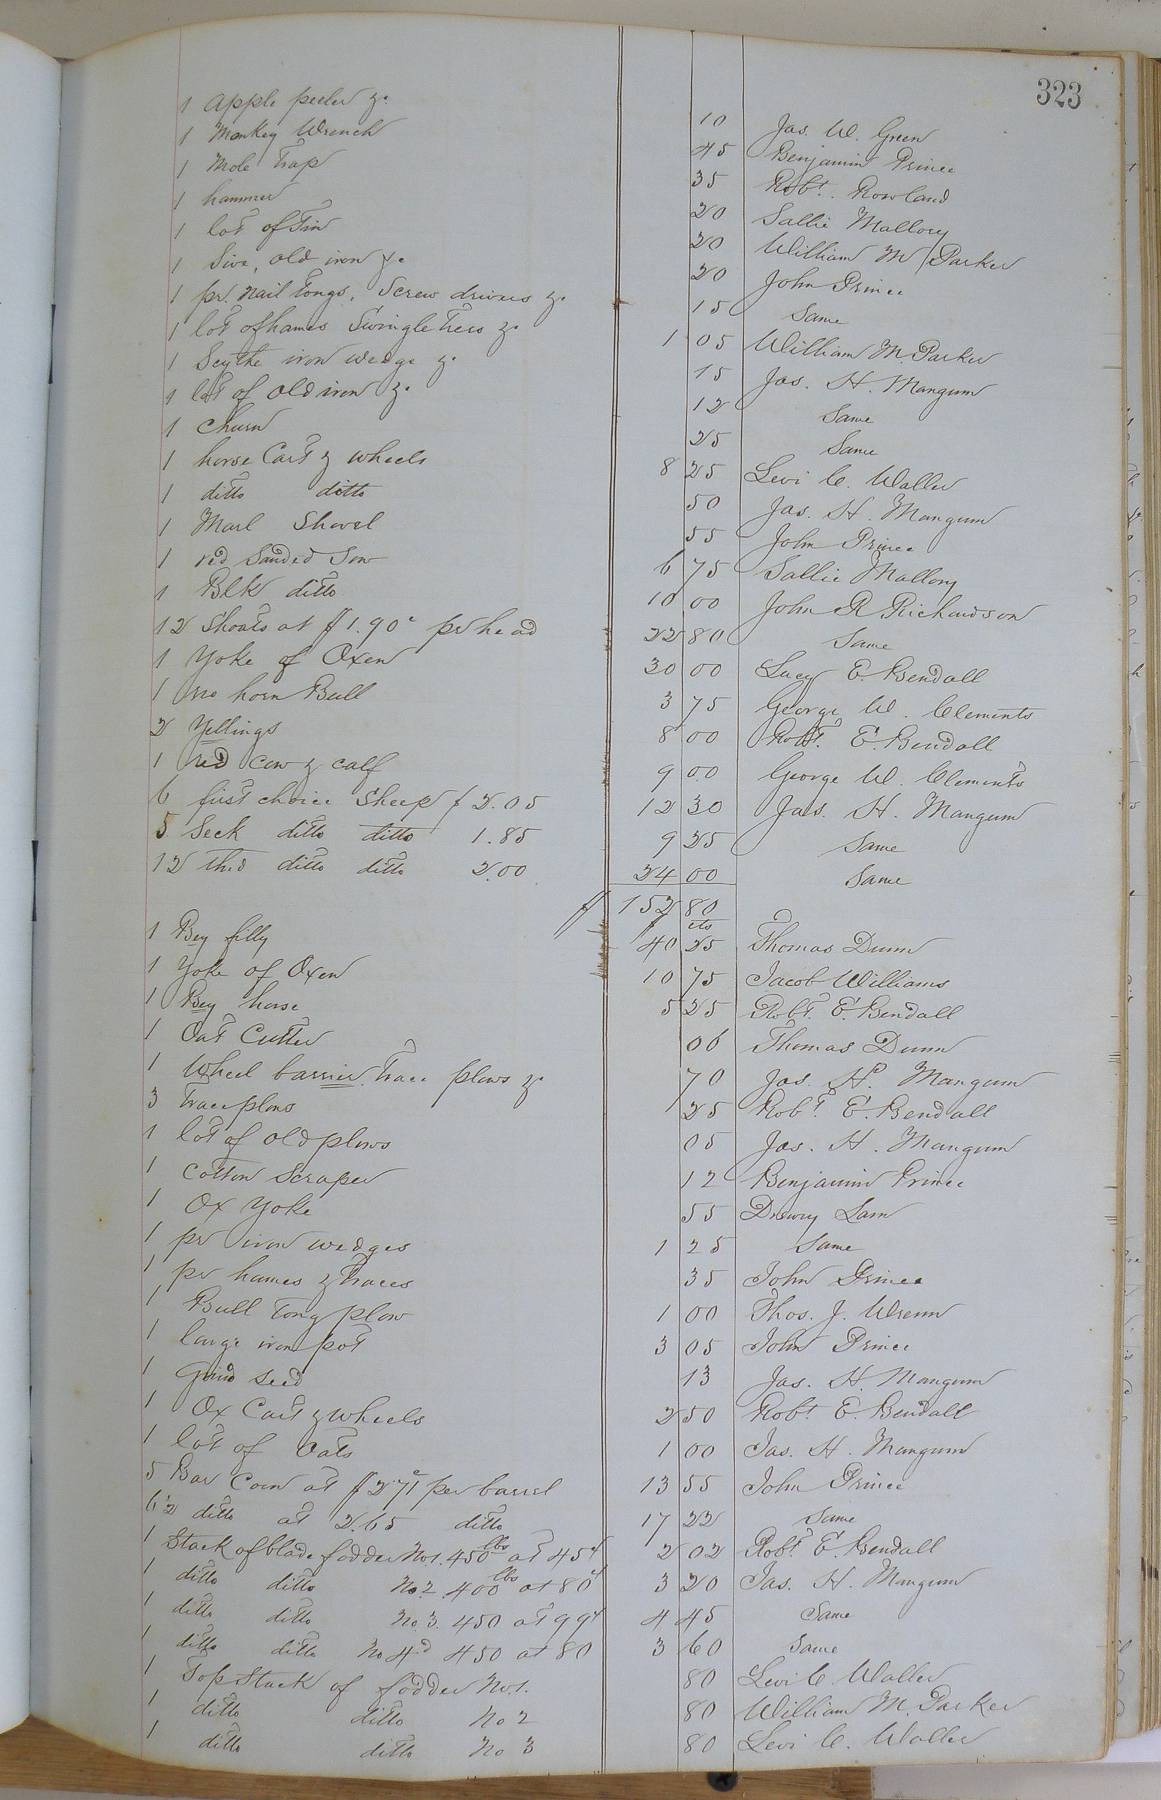 323
1 Apple peeler &c 10 Jas. W. Green
1 Monkey Wrench 45 Benjamin Prince
1 Mole Trap 35 Robt. Rowland
1 hammer 20 Sallie Mallory
1 lot of Tin 20 William M Parker
1 Sive, old iron &c 20 John Prince
1 pr. nail Tongs, Screw drivers &c 15 Same
1 lot of hames Swingle Trees &c 1 05 William M. Parker
1 Scythe iron wedge &c 15 Jas. H. Mangum
1 lot of old iron &c 12 Same
1 Churn 25 Same
1 horse Cart & wheels 8 25 Levi C. Waller
1 ditto ditto 50 Jas. H. Mangum
1 Marl Shovel 55 John Prince
1 red Sanded Sow 6 75 Sallie Mallory
1 Blk ditto 10 00 John R Richardson
12 Shoats at $1.90c pr head 22 80 Same
1 Yoke of Oxen 30 00 Lucy E. Bendall
1 no horn Bull 3 75 George W. Clements
2 Yellings 8 00 Robt. E. Bendall
1 red cow & calf 9 00 George W. Clements
6 first choice Sheep $2.05 12 30 Jas. H. Mangum
5 Seck ditto ditto 1.85 9 25 Same
12 thrd ditto ditto 2.00 24 00 Same
$ 152 80
$ cts
1 Bey filly 40 25 Thomas Dunn
1 Yoke of Oxen 10 75 Jacob Williams
1 Bey horse 5 25 Robt. E. Bendall
1 Oat Cutter 06 Thomas Dunn
1 Wheel barrier, Trace plows &c 70 Jas. H. Mangum
3 Trace plows 25 Robt. E. Bendall
1 lot of old plows 05 Jas. H. Mangum
1 Cotton Scraper 12 Benjamin Prince
1 Ox Yoke 55 Drewry Lam
1 pr iron wedges 1 25 Same
1 pr hames & Traces 35 John Prince
1 Bull Tong plow 1 00 Thos. J. Wrenn
1 large iron pot 3 05 John Prince
1 Grind Seed 13 Jas. H. Mangum
1 Ox Cart & wheels 2 50 Robt E. Bendall
1 lot of Oats 1 00 Jas. H. Mangum
5 Bar Corn at $2 71c per barrel 13 55 John Prince
6½ ditto at 2.65 ditto 17 22 Same
1 Stack of blade fodder No 1. 450 lbs at 45c 2 02 Robt. E. Bendall
1 ditto ditto No 2. 400 lbs at 80c 3 20 Jas. H. Mangum
1 ditto ditto No 3. 450 at 99c 4 45 Same
1 ditto ditto No 4d 450 at 80 3 60 Same
1 Top Stack of fodder No 1. 80 Levi C. Waller
1 ditto ditto No 2 80 William M. Parker
1 ditto ditto No 3 80 Levi C. Waller